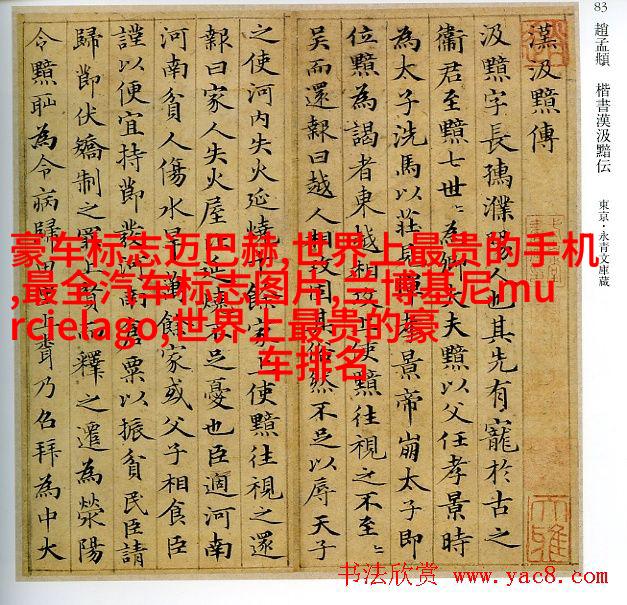 83
趙孟頫 楷書漢汲黯伝 東京・永青文庫蔵
漢汲黯傳
汲黯字長孺濮陽人也其先有寵於古之
衞君至黯七世〻為卿大夫黯以父任孝景時
為太子洗馬以莊見憚孝景帝崩太子即
位黯為謁者東越相攻上使黯往視之不至〻
吳而還報曰越人相攻固其俗然不足以辱天子
之使河内失火延燒千餘家上使黯往視之還
報曰家人失火屋比延燒不足憂也臣過河南
河南貧人傷水旱萬餘家或父子相食臣
謹以便宜持節發河南倉粟以振貧民臣請
歸節伏矯制之罪上賢而釋之遷為滎陽
令黯恥為令病歸田里上乃召拜為中大
豪车标志迈巴赫,世界上最贵的手机
,最全汽车标志图片,兰博基尼mu
rcielago,世界上最贵的豪
车排名
书法欣赏 www.yac8.com